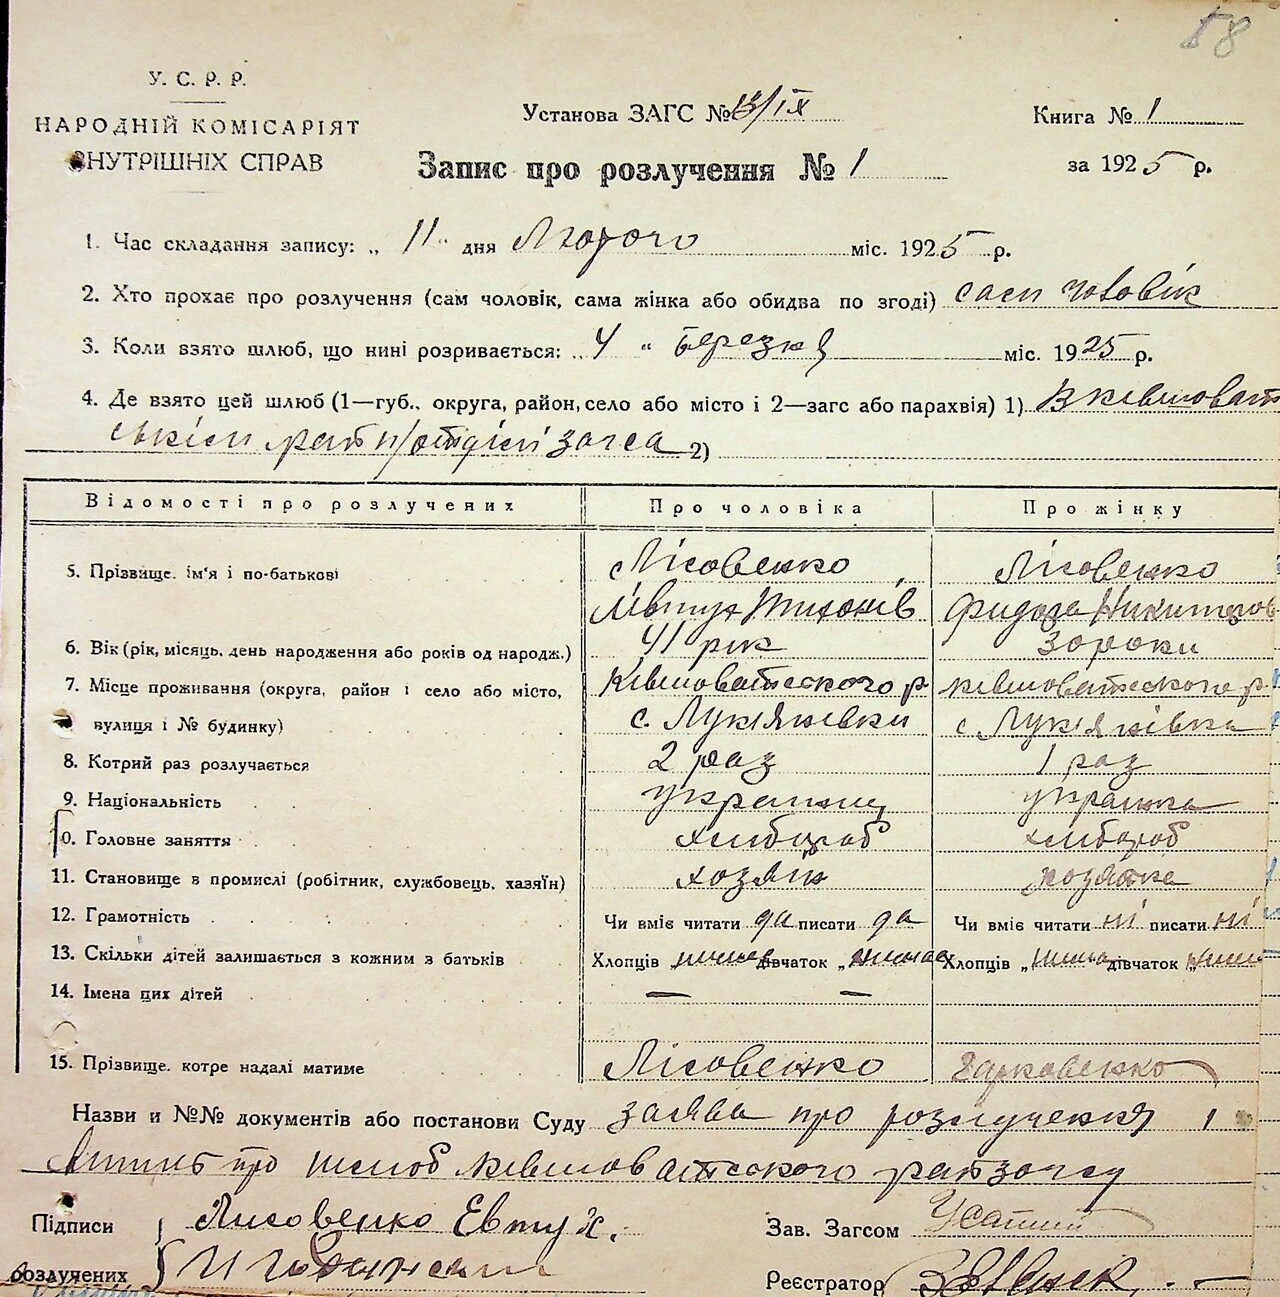 58
У. С. Р. Р.
НАРОДНІЙ КОМІСАРІЯТ
ВНУТРІШНІХ СПРАВ
Установа ЗАГС № 13/IX
Книга № 1
Запис про розлучення № 1
за 1925 р.
1. Час складання запису: „ 11 " дня Лютого міс. 1925 р.
2. Хто прохає про розлучення (сам чоловік, сама жінка або обидва по згоді) сам чоловік
3. Коли взято шлюб, що нині розривається: „ 4 " березня міс. 1925 р.
4. Де взято цей шлюб (1—губ., округа, район, село або місто і 2—загс або парахвія) 1) В ківшоват
ськім рай п/отділі загса 2)
Відомості про розлучених Про чоловіка Про жінку
5. Прізвище, ім'я і по-батькові Лісовенко Лісовенко
Явтух Тихонів Фидора Никитов
6. Вік (рік, місяць, день народження або років од народж.) 41 рік 30 роки
7. Місце проживання (округа, район і село або місто, Ківшоватского р. ківшоватского р.
вулиця і № будинку) с. Лукіянівки с Лукіянівка
8. Котрий раз розлучається 2 раз 1 раз
9. Національність украинц украинка
10. Головне заняття хлибороб хлибороб
11. Становище в промислі (робітник, службовець, хазяїн) хозяїн хозяйка
12. Грамотність Чи вміє читати да писати да Чи вміє читати ні писати ні
13. Скільки дітей залишається з кожним з батьків Хлопців „ нимає дівчаток „ нимає Хлопців „ нима дівчаток „ нима
14. Імена цих дітей — —
15. Прізвище, котре надалі матиме Лісовенко Харковенко
Назви и №№ документів або постанови Суду заява про розлучення і
про шлюб ківшоватського райзагсу
Підписи Лисовенко Евтух. Зав. Загсом
розлучених Реєстратор